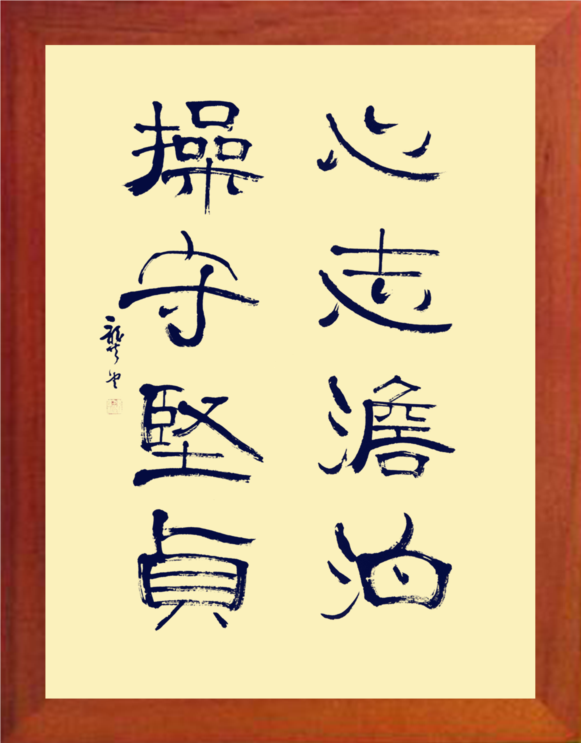 心志澹泊
操守堅貞